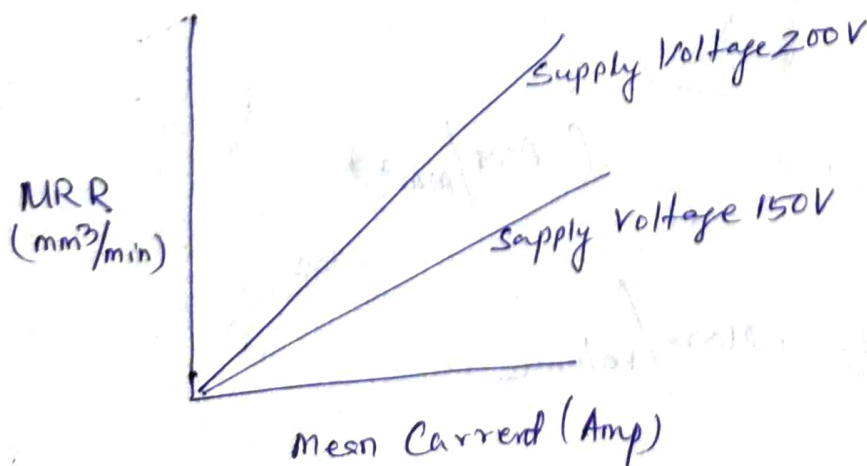 Supply Voltage 200V
MRR
(mm³/min)
Supply Voltage 150V
Mean Current (Amp)